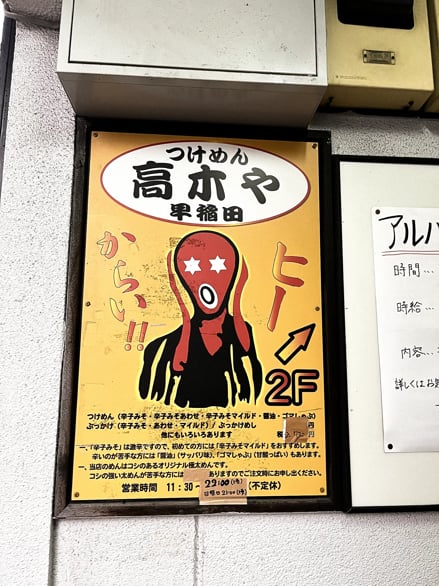 つけめん
高木や
早稲田
からい!!
ヒー
2F
つけめん(辛子みそ・辛子みそあわせ・辛子みそマイルド・醤油・ゴマしゃぶ)
ぶっかけ(辛子みそ・あわせ・マイルド)/ぶっかけめし 円
他にもいろいろあります 円
一、「辛子みそ」は激辛ですので、初めての方には「辛子みそマイルド」をおすすめします。
辛いのが苦手な方には「醤油」(サッパリ味)、「ゴマしゃぶ」(甘酸っぱい)もあります。
一、当店のめんはコシのあるオリジナル極太めんです。
コシの強い太めんが苦手な方には ありますのでご注文時にお申し出ください。
営業時間 11:30~22:00 (不定休)
日曜日21:00
アルバ
時間…
時給…
内容…
詳しくはお